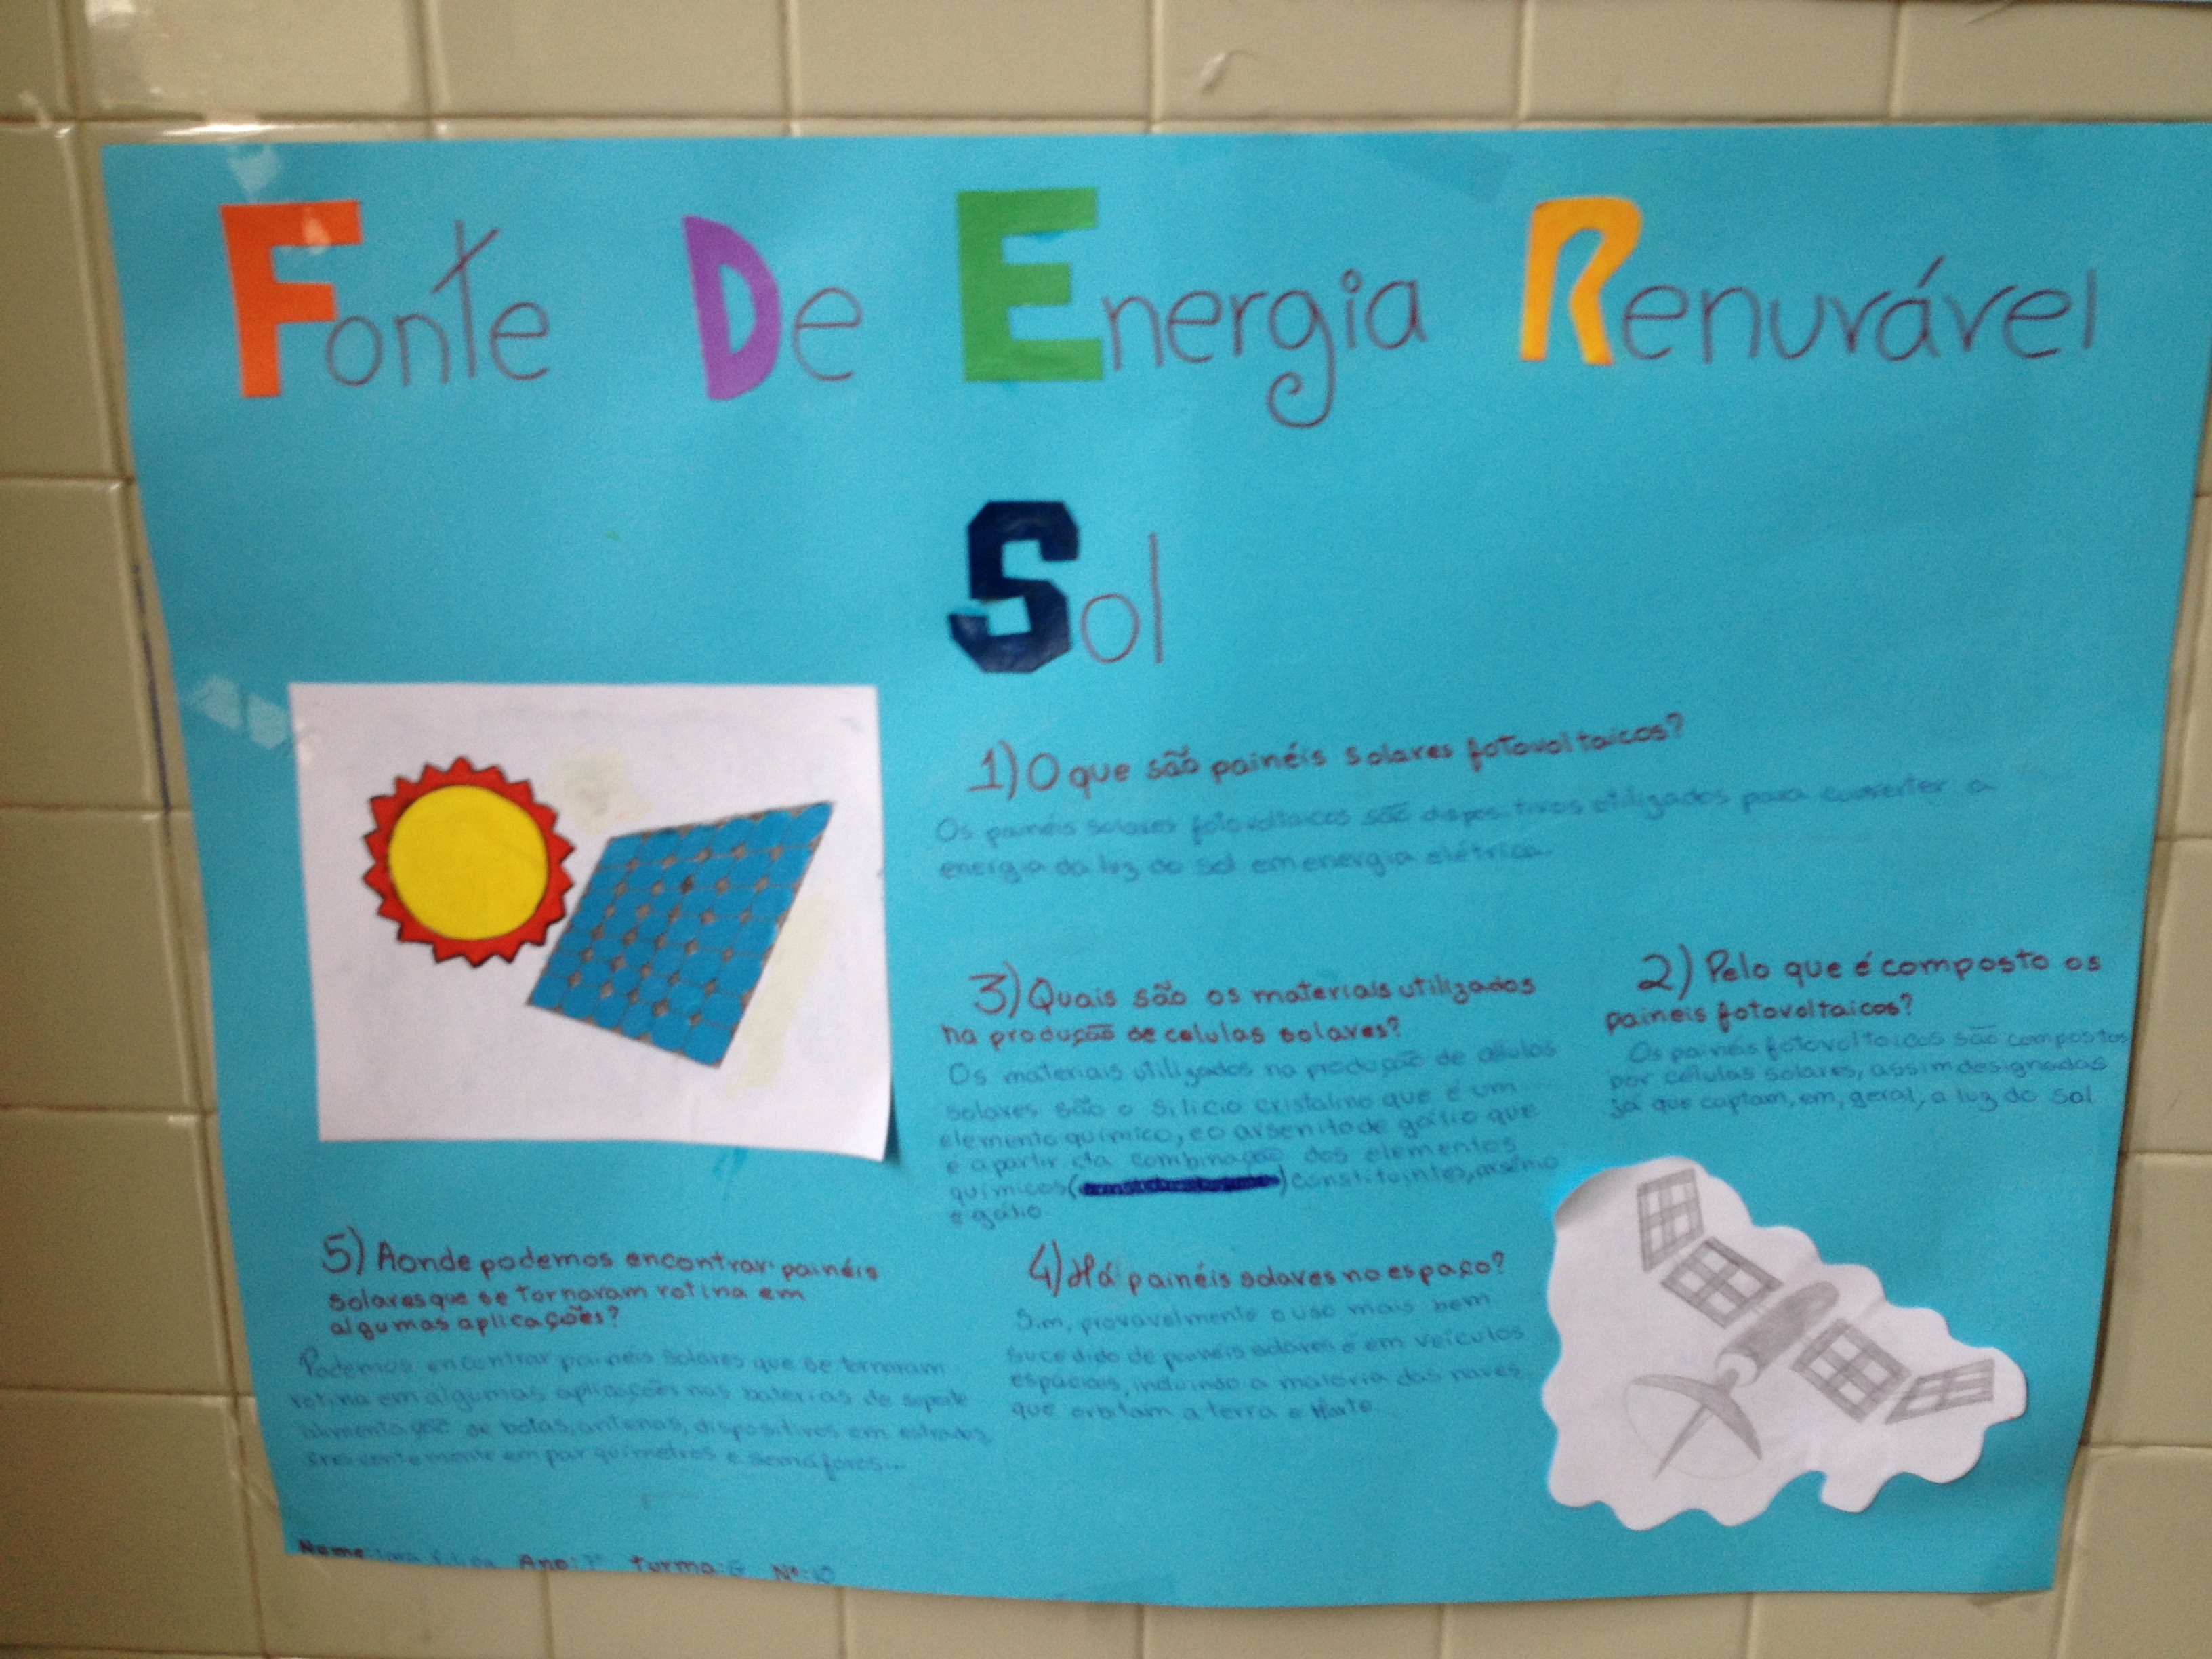 Fonte De Energia Renuvável
Sol
1) O que são painéis solares fotovoltaicos?
Os painéis solares fotovoltaicos são dispositivos utilizados para converter a
energia da luz do sol em energia elétrica.
2) Pelo que é composto os
paineis fotovoltaicos?
Os painéis fotovoltaicos são compostos
por células solares, assim designadas
já que captam, em, geral, a luz do sol
3) Quais são os materiais utilizados
na produção de celulas solares?
Os materiais utilizados na produção de células
solares são o silicio cristalino que é um
elemento químico, e o arsenito de gálio que
é apartir da combinação dos elementos
químicos ( ) constituintes, arsénio
e gálio
4) Há painéis solares no espaço?
Sim, provavelmente o uso mais bem
sucedido de painéis solares é em veículos
espaciais, incluindo a maioria das naves
que orbitam a terra e Marte
5) Aonde podemos encontrar painéis
solares que se tornaram rotina em
algumas aplicações?
Podemos encontrar painéis solares que se tornaram
rotina em algumas aplicações nas baterias de suporte
alimentação de boias, antenas, dispositivos em estradas,
crescentemente em parquímetros e semáforos...
Nome: Ano: 7º turma: G Nº: 10